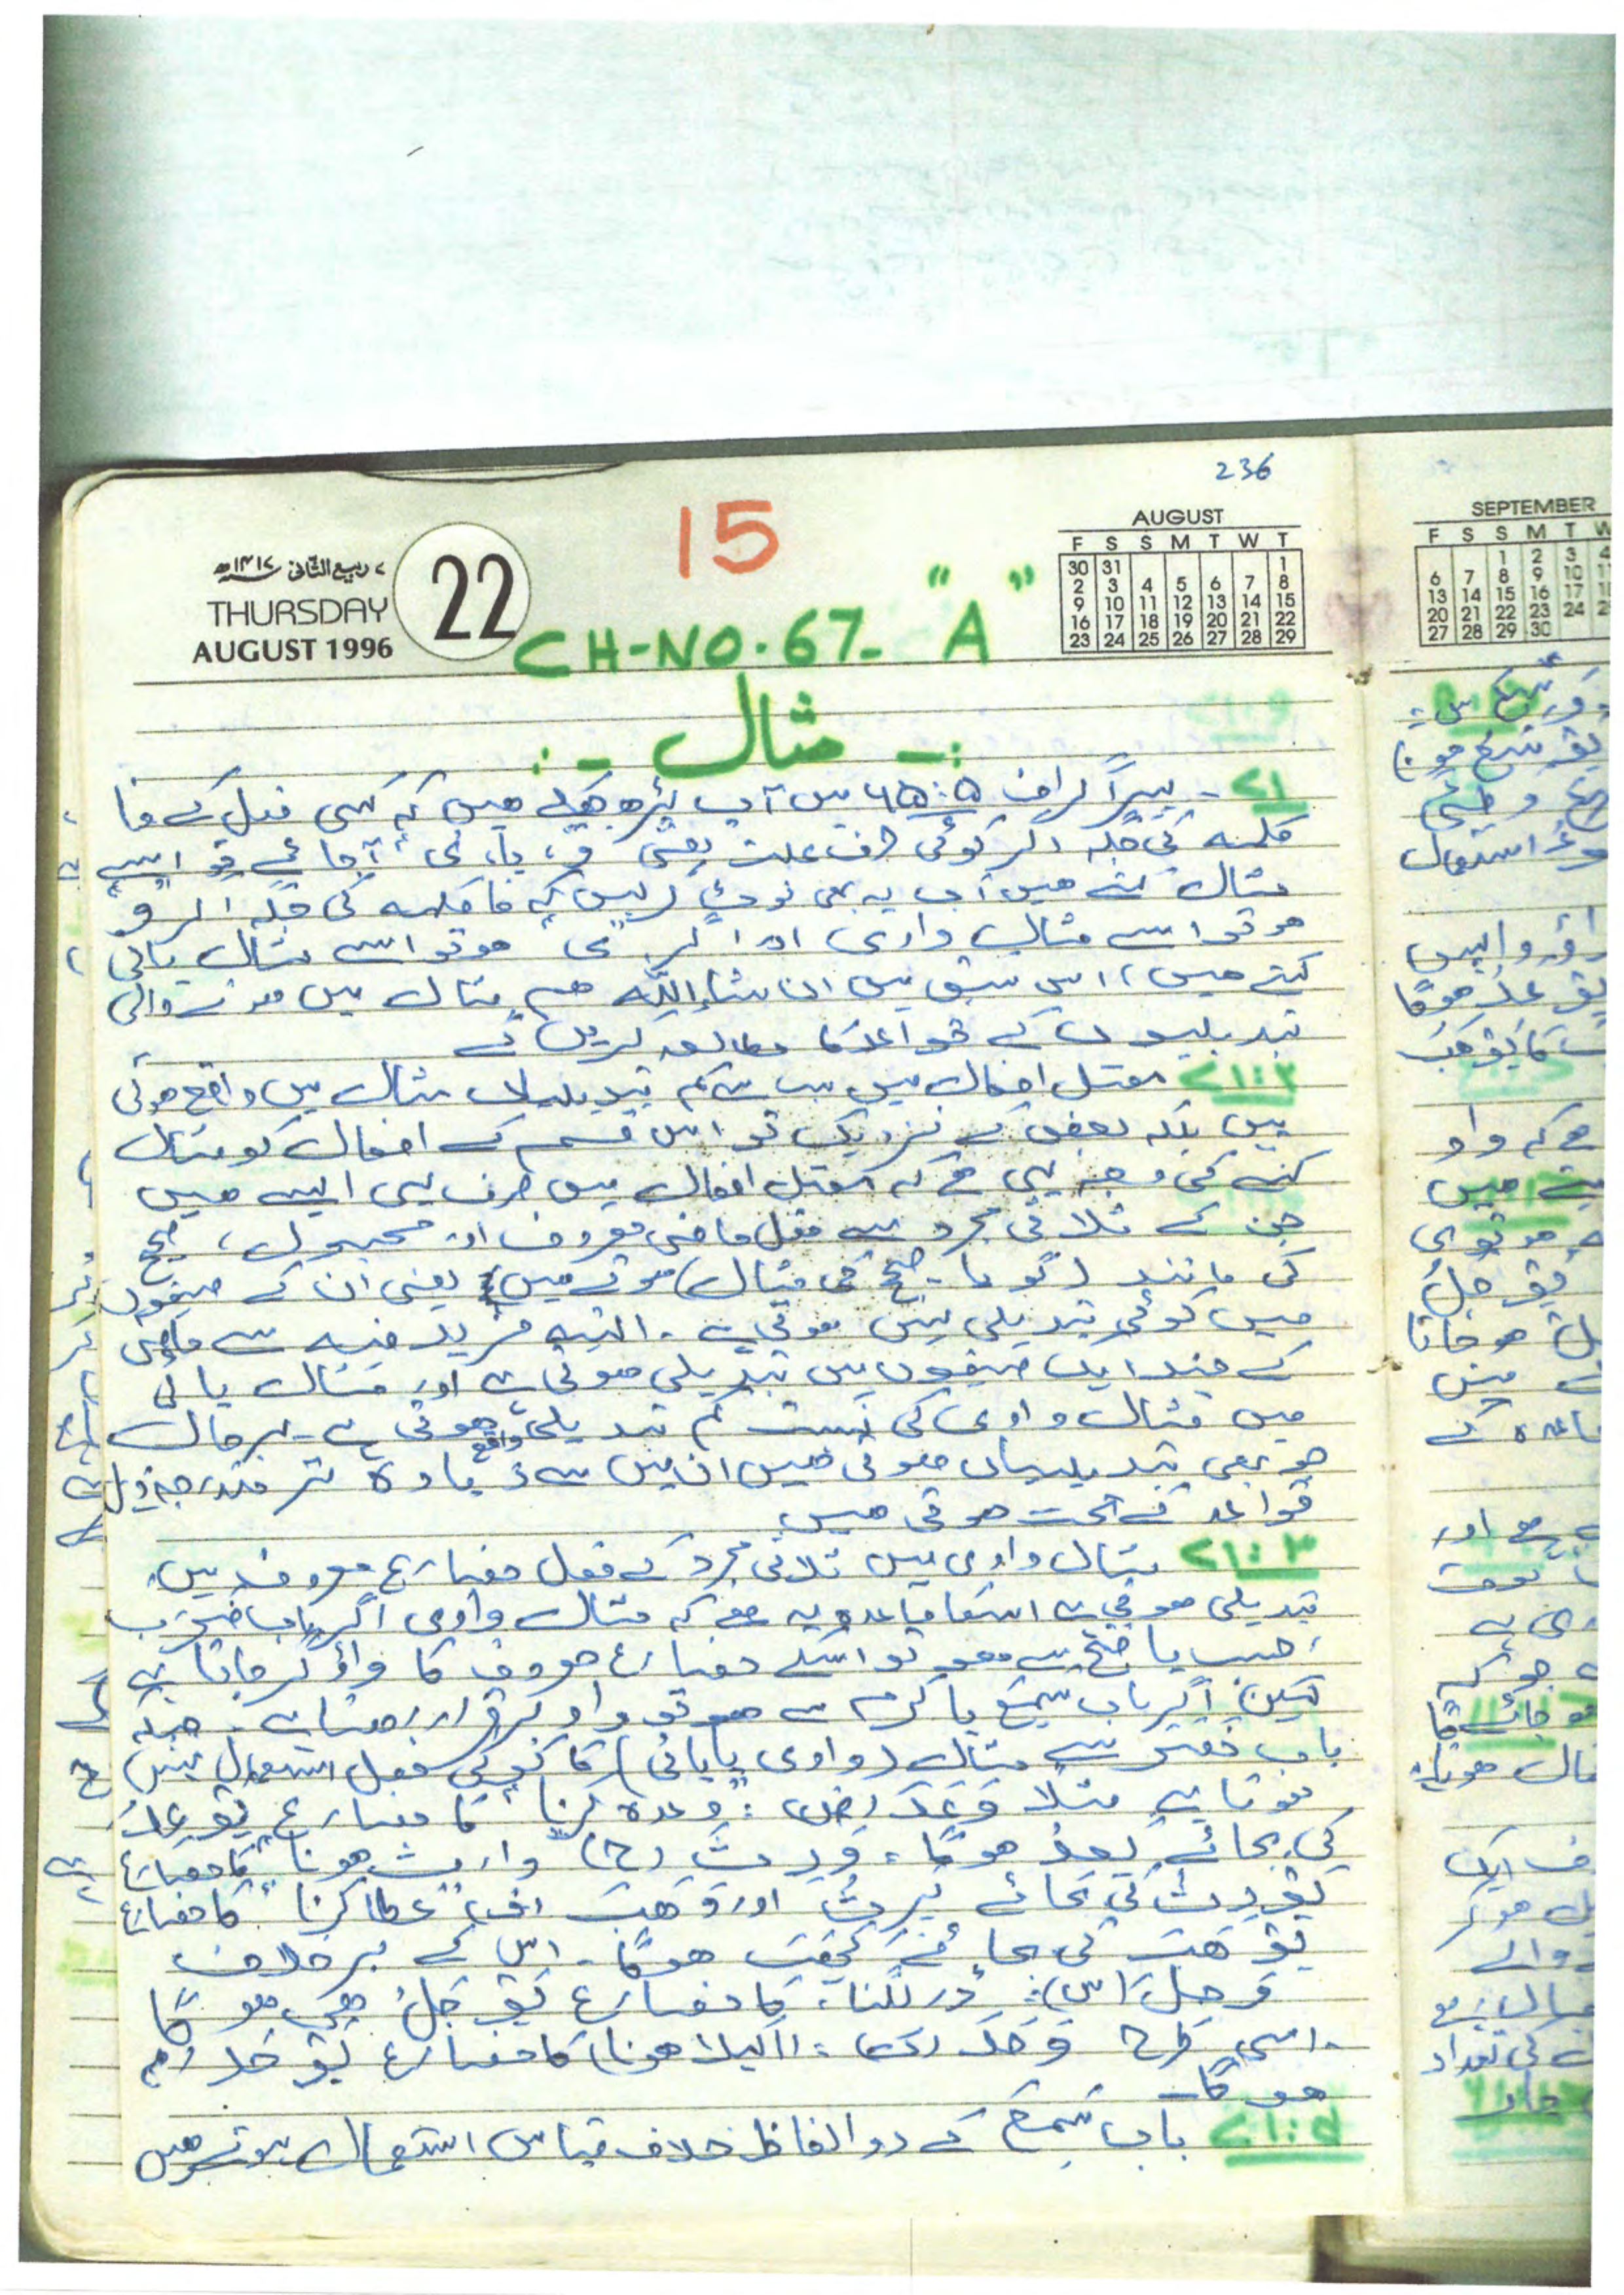 236
15
۷ ربیع الثانی ۱۴۱۷ھ
THURSDAY
AUGUST 1996
22
CH-NO.67- "A"
AUGUST
F S S M T W T
30 31 1
2 3 4 5 6 7 8
9 10 11 12 13 14 15
16 17 18 19 20 21 22
23 24 25 26 27 28 29
SEPTEMBER
F S S M T W
1 2 3 4
6 7 8 9 10
13 14 15 16 17
20 21 22 23 24
27 28 29 30
:- مثال -:
۷۱ - پیراگراف ۶۵:۵ میں آپ پڑھ چکے ہیں کہ کسی فعل کے فا
کلمہ کی جگہ اگر کوئی حرف علت یعنی و، یا، ی آجائے تو اسے
مثال کہتے ہیں آپ یہ بھی نوٹ کرلیں کہ فا کلمہ کی جگہ اگر "و"
ہو تو اسے مثال واوی اور اگر "ی" ہو تو اسے مثال یائی
کہتے ہیں، اس سبق میں ان شاء اللہ ہم مثال میں ہونے والی
تبدیلیوں کے قواعد کا مطالعہ کریں گے
۷۱:۲ معتل افعال میں سب سے کم تبدیلیاں مثال میں واقع ہوتی
ہیں بلکہ بعض کے نزدیک تو اس قسم کے افعال کو مثال
کہنے کی وجہ یہی ہے کہ معتل افعال میں صرف یہی ایسے ہیں
جن کے ثلاثی مجرد سے فعل ماضی معروف اور مجہول، صحیح
کی مانند (گویا صحیح کی مثال) ہوتے ہیں یعنی ان کے صیغوں
میں کوئی تبدیلی نہیں ہوتی ہے - البتہ مزید فیہ سے ماضی
کے چند ایک صیغوں میں تبدیلی ہوتی ہے اور مثال یائی
میں مثال واوی کی نسبت کم تبدیلی واقع ہوتی ہے - بہرحال
جو بھی تبدیلیاں ہوتی ہیں ان میں سے زیادہ تر مندرجہ ذیل
قواعد کے تحت ہوتی ہیں
۷۱:۳ مثال واوی میں ثلاثی مجرد کے فعل مضارع معروف میں
تبدیلی ہوتی ہے اسکا قاعدہ یہ ہے کہ مثال واوی اگر باب ضرب
، حسب یا فتح سے ہو تو اسکے مضارع معروف کا واؤ گر جاتا ہے
لیکن اگر باب سمع یا کرم سے ہو تو واو برقرار رہتا ہے - جبکہ
باب نصر سے مثال (واوی یا یائی) کا کوئی فعل استعمال نہیں
ہوتا ہے مثلاً وَعَدَ (ض) : وعدہ کرنا" کا مضارع یَوْعِدُ
کی بجائے یَعِدُ ہوگا، وَرِثَ (ح) وارث ہونا" کا مضارع
یَوْرِثُ کی بجائے یَرِثُ اور وَهَبَ (ف) "عطا کرنا" کا مضارع
یَوْهَبُ کی بجائے یَهَبُ ہوگا - اس کے برخلاف
وَجِلَ (س): ڈر لگنا، کا مضارع یَوْجَلُ ہی ہوگا
- اسی طرح وَحُدَ (ک) : (اکیلا ہونا) کا مضارع یَوْحُدُ ہی
ہوگا -
۷۱:۴ باب سَمِعَ کے دو الفاظ خلاف قیاس استعمال ہوتے ہیں